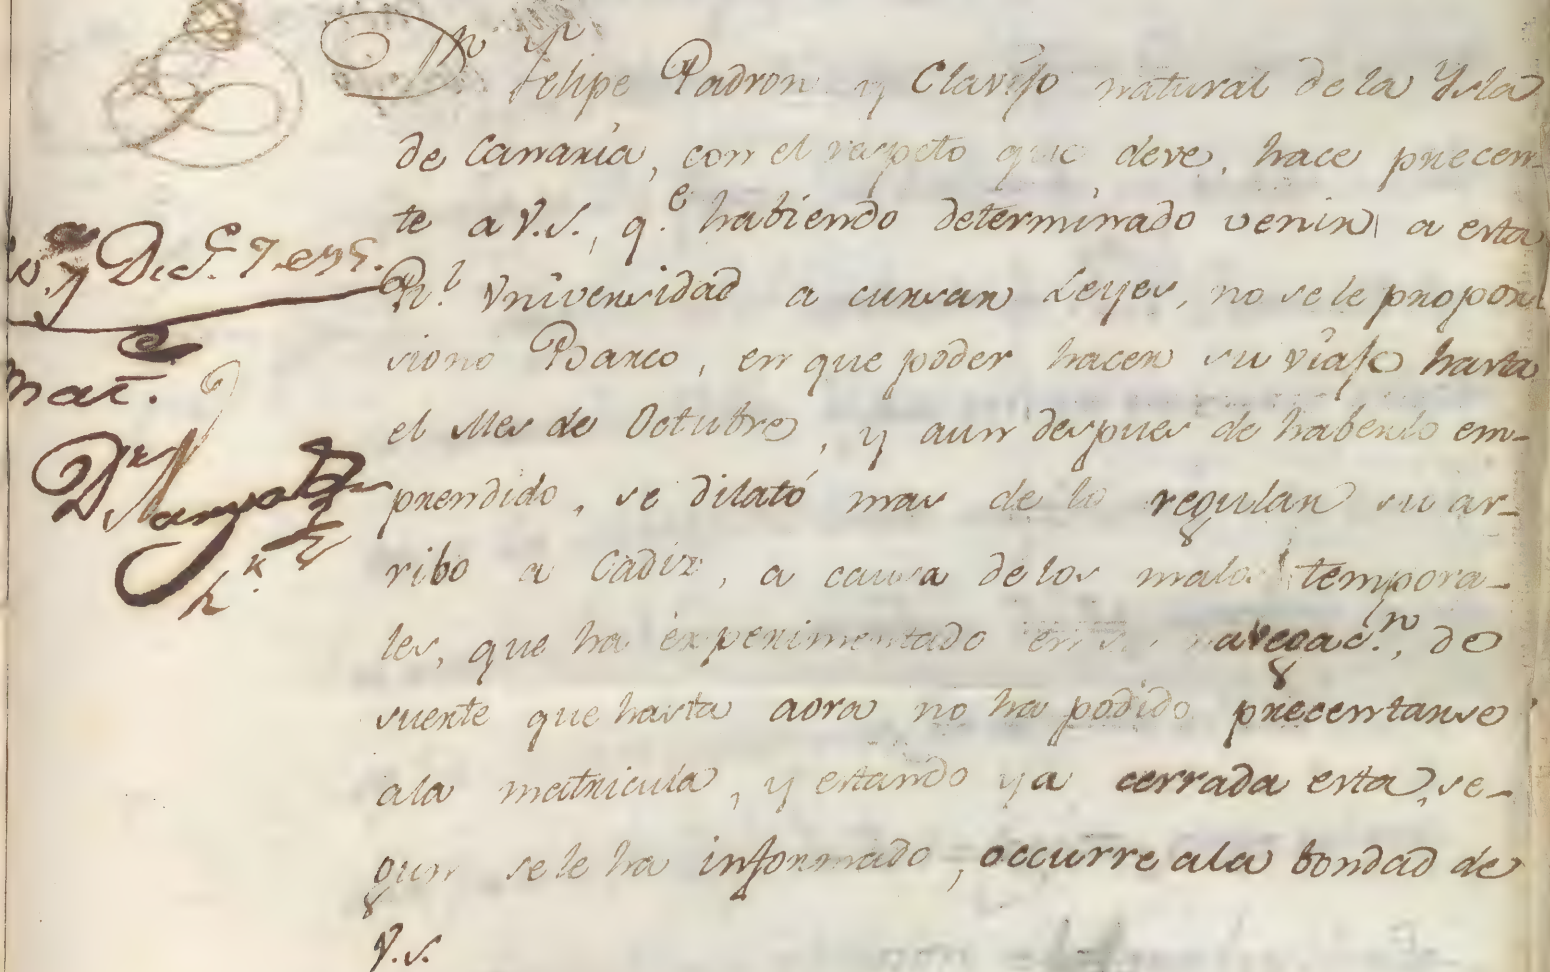 Dn. Felipe Padron y Clavijo natural de la Ysla
de Canaria, con el respeto que deve, hace precen-
te a V.S., q.e habiendo determinado venir a esta
R.l Vniversidad a cursar Leyes, no se le propor
siono Barco, en que poder hacer su viaje hasta
el Mes de Octubre, y aun despues de haberlo em-
prendido, se dilató mas de lo regular su ar-
ribo a Cadiz, a causa de los malos tempora-
les, que ha experimentado en su navegac.n, de
suerte que hasta aora no ha podido precentarse
ala matricula, y estando ya cerrada esta, se-
gun se le ha informado, occurre ala bondad de
V.S.
y Dic.e 7 de
Mat.
Dr.